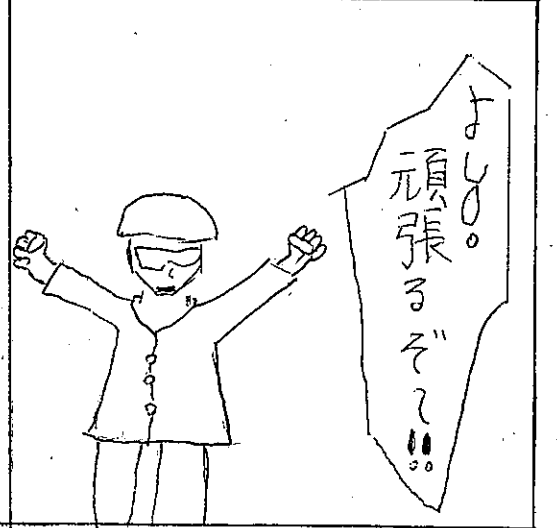 よし!
頑張るぞ〜!!